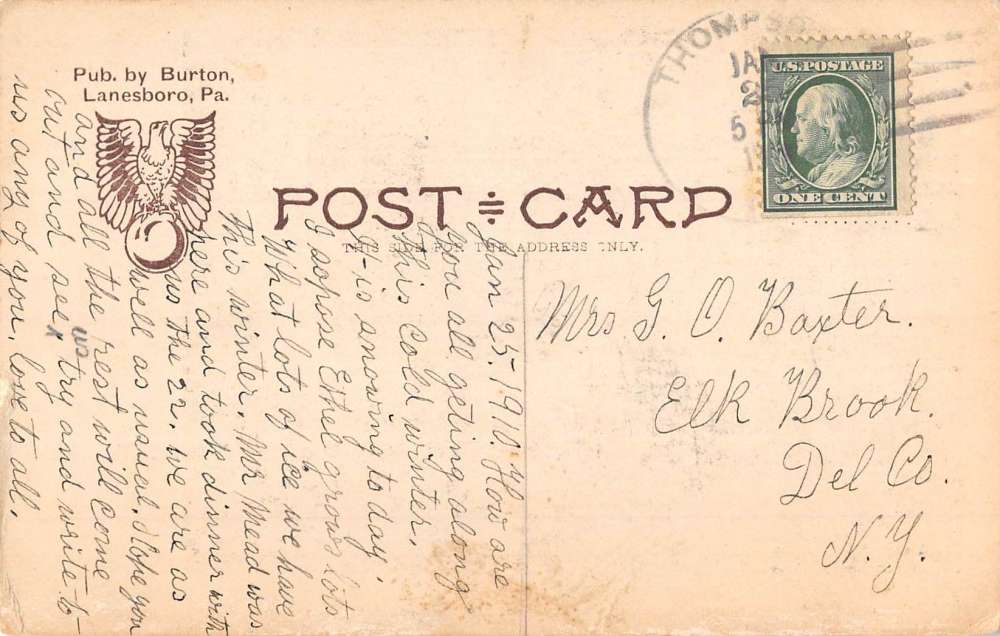 Pub. by Burton,
Lanesboro, Pa.
THOMPSO
JAN
2
5
1
U.S. POSTAGE
ONE CENT
POST CARD
THIS SIDE FOR THE ADDRESS ONLY.
Jan 25-1910. How are
you all geting along
this cold winter.
it-is snowing to day.
I sopose Ethel grows lots
What lots of ice we have
This winter. Mr Mead was
here and took dinner with
us the 22. we are as
well as usual. Hope you
and all the rest will come
out and see us try and write to
us any of you. love to all.
Mrs G. O. Baxter.
Elk Brook.
Del Co.
N.Y.